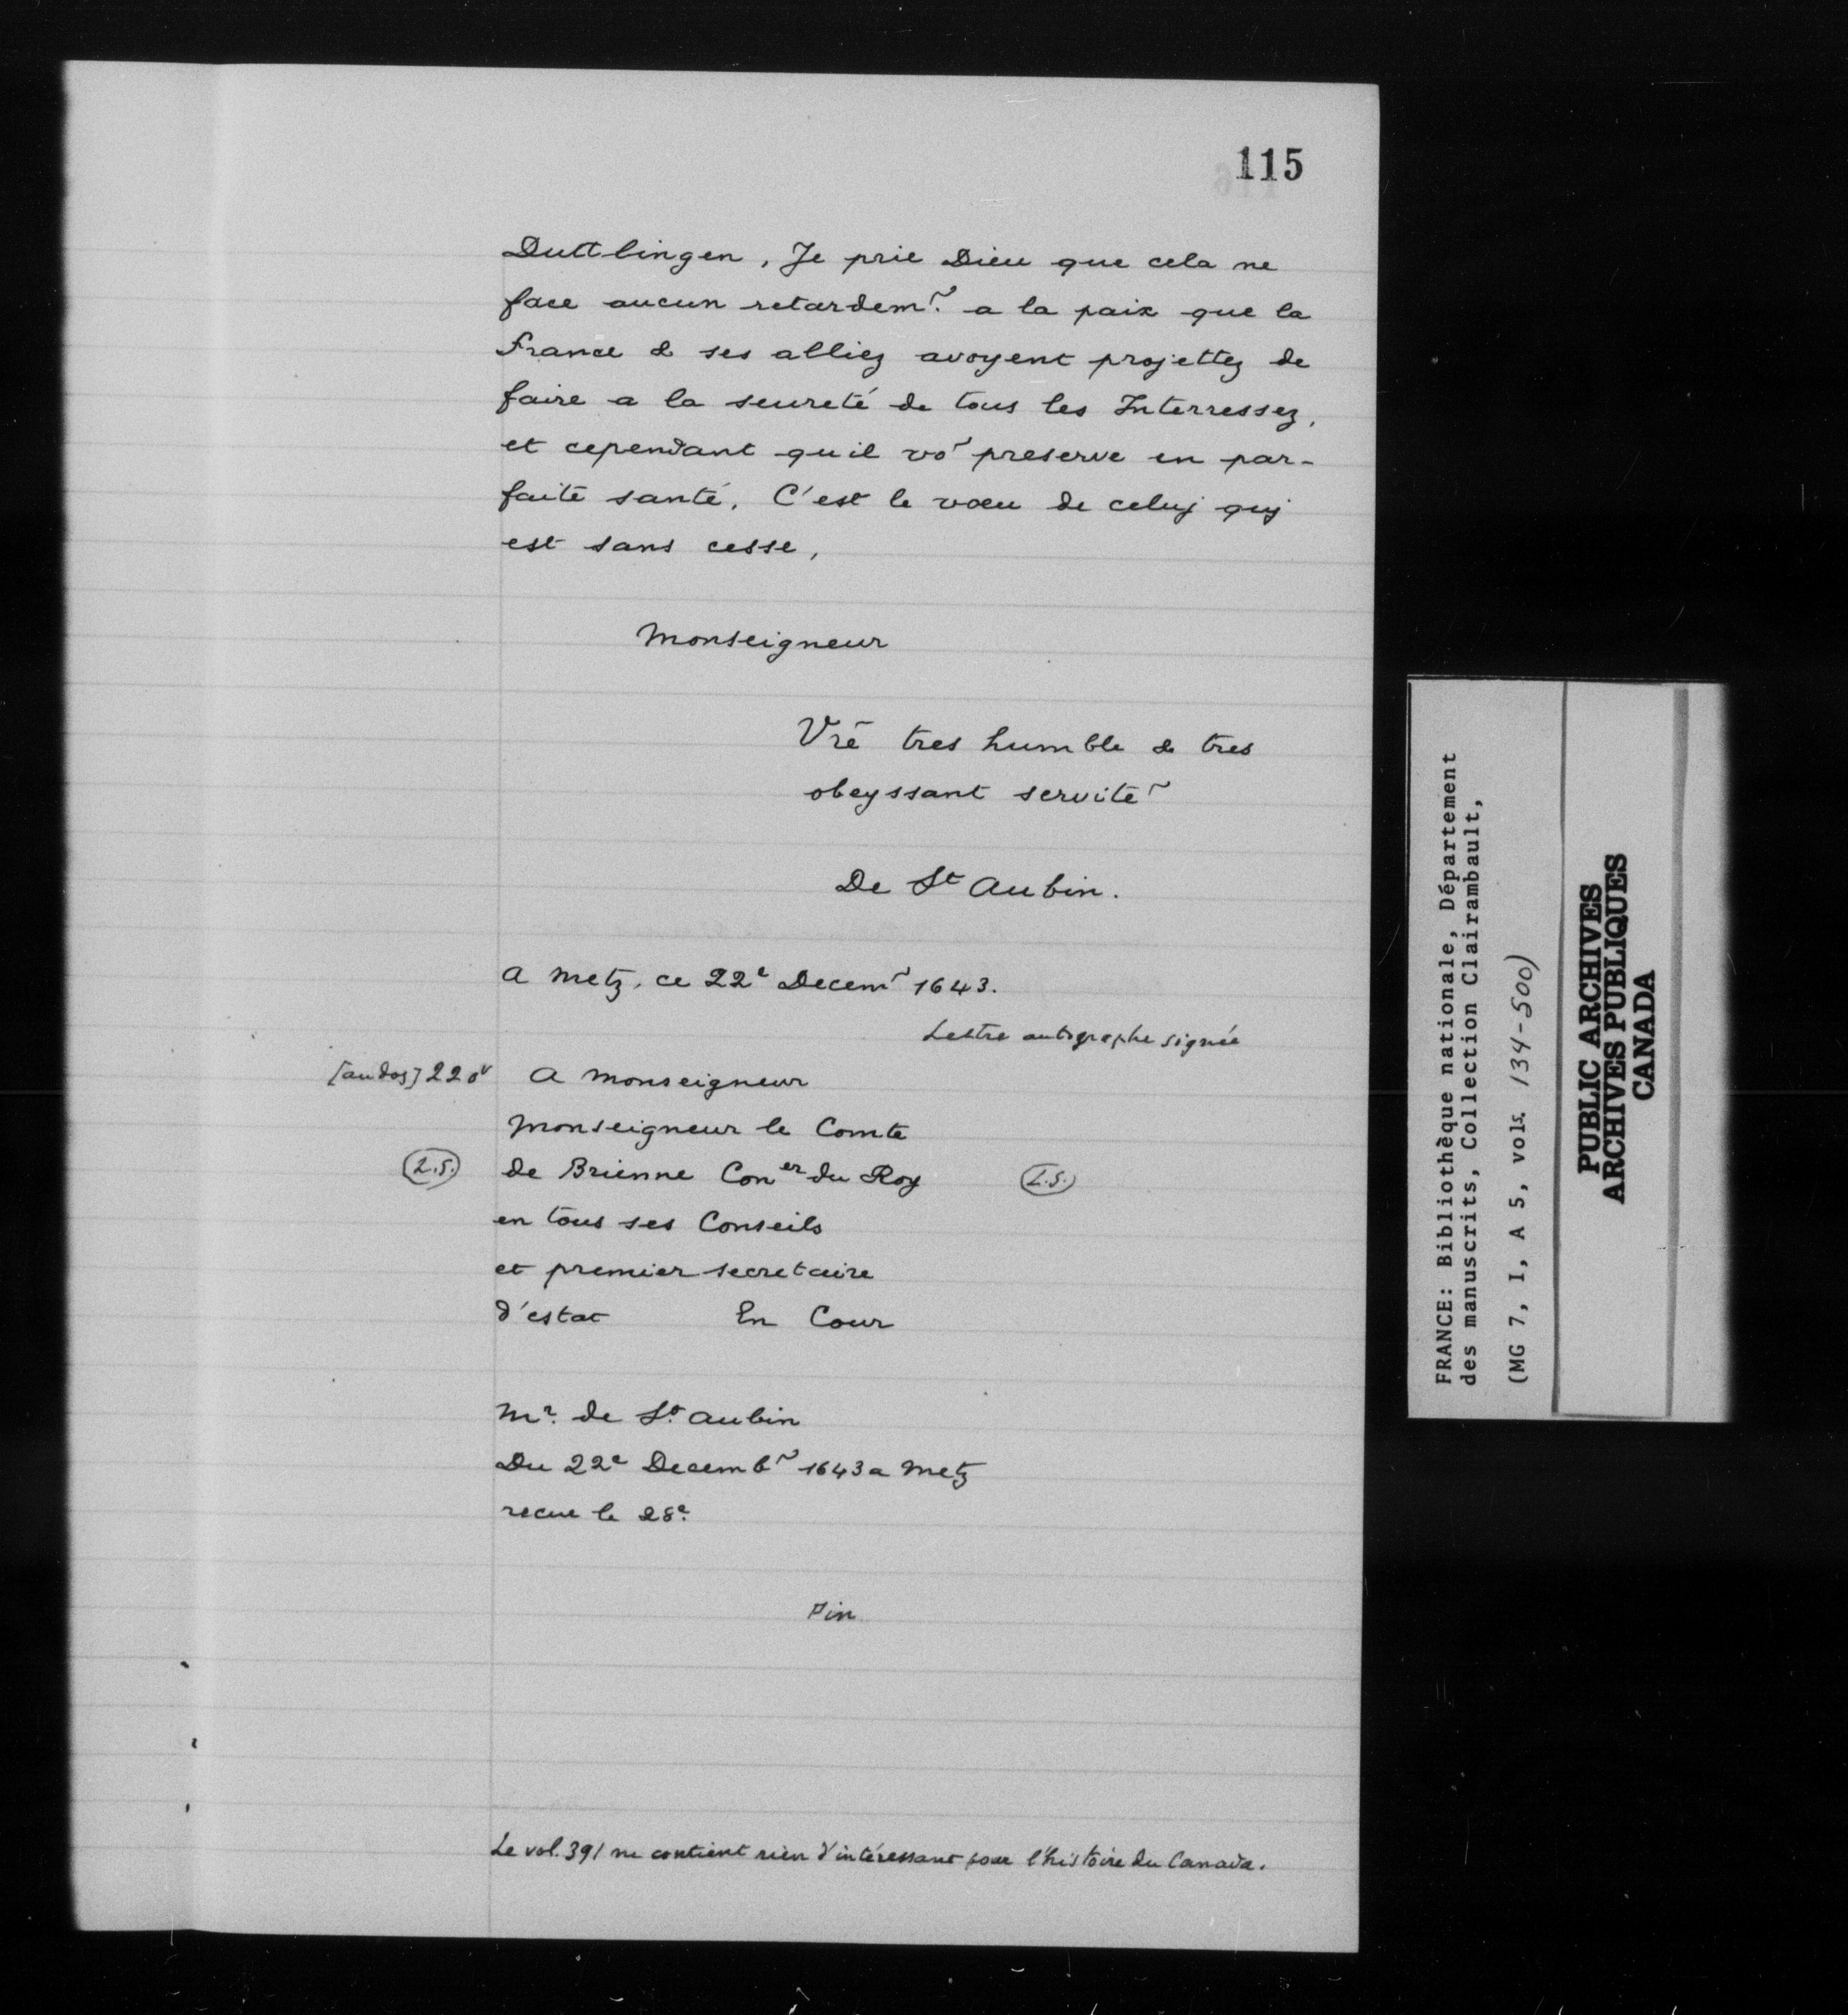 115
Duttlingen, Je prie Dieu que cela ne
face aucun retardem̃. a la paix que la
France & ses alliez avoyent projettez de
faire a la seureté de tous les Interressez,
et cependant quil võ preserve en par-
faite santé. C'est le vœu de celuj quj
est sans cesse,
Monseigneur
Vrē tres humble & tres
obeyssant servitẽ
De St Aubin.
A Metz, ce 22e Decem̃ 1643.
Lettre autographe signée
[au dos] 220v A Monseigneur
Monseigneur le Comte
(L.S.) de Brienne Coner du Roy (L.S.)
en tous ses Conseils
et premier secretaire
d'estat En Cour
Mr. de St. Aubin
Du 22e Decemb̃ 1643 a Metz
recue le 28e.
Fin
Le vol. 391 ne contient rien d'intéressant pour l'histoire du Canada.
FRANCE: Bibliothèque nationale, Département
des manuscrits, Collection Clairambault,
(MG 7, I, A 5, vols. 134-500)
PUBLIC ARCHIVES
ARCHIVES PUBLIQUES
CANADA